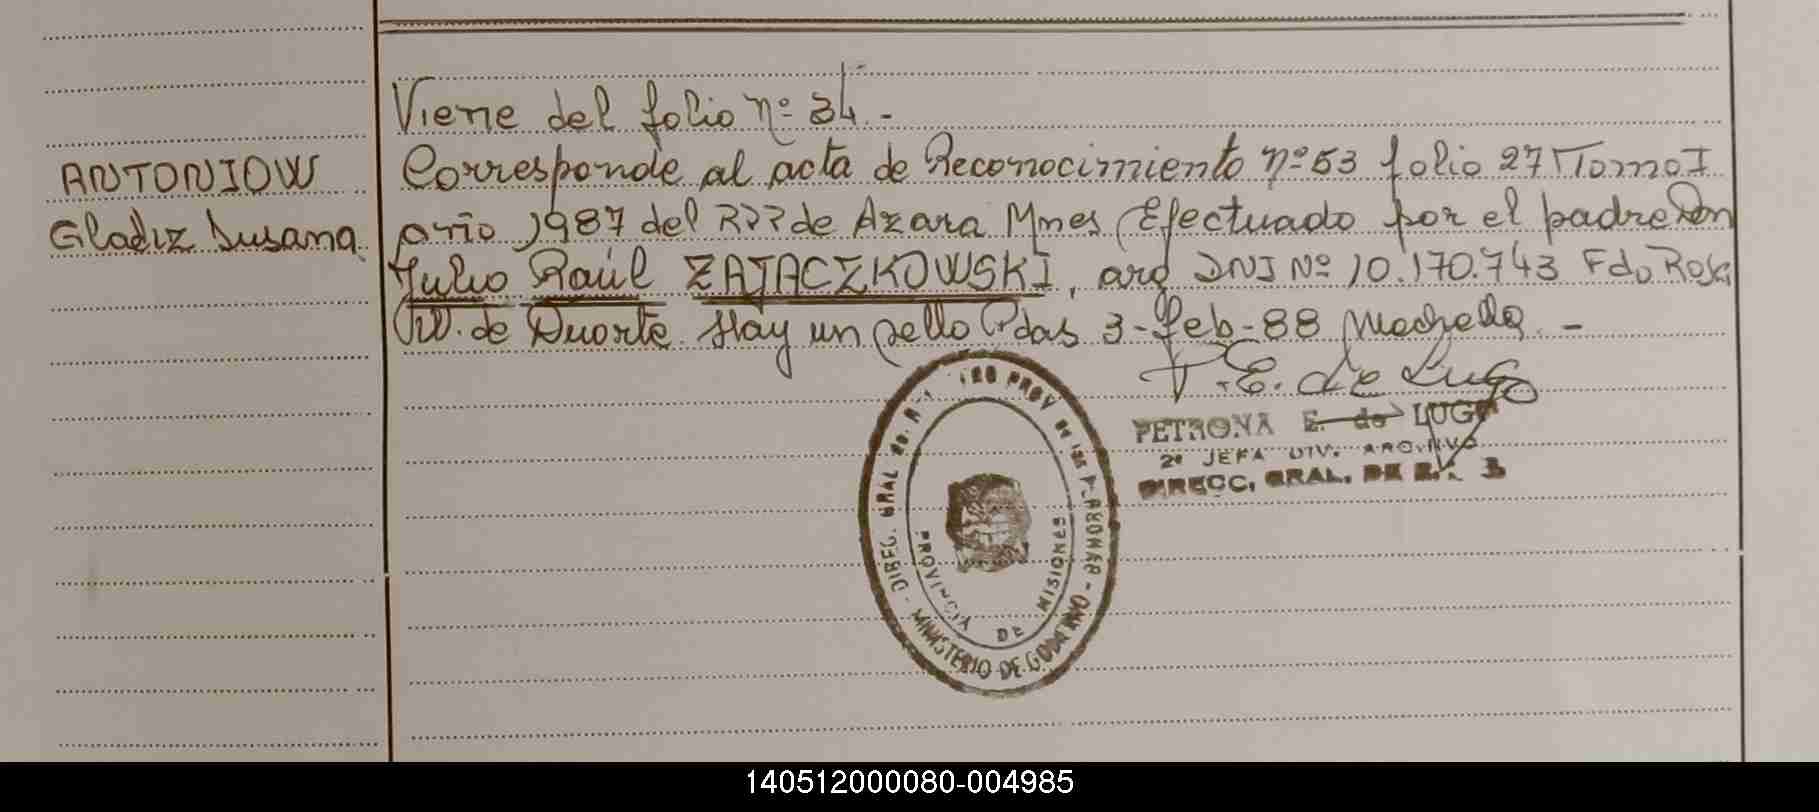 Viene del folio Nº 34.-
ANTONIOW
Gladiz Susana
Corresponde al acta de Reconocimiento Nº 53 folio 27 Tomo I
año 1987 del RPP de Azara Mnes Efectuado por el padre Don
Julio Raúl ZAJACZKOWSKI, arg DNI Nº 10.170.743 Fdo Rosa
W. de Duarte. Hay un sello Pdas 3-Feb-88
P.E. de Lugo
PETRONA E. de LUGO
2º JEFA DIV. ARCHIVO
DIRECC, GRAL. DE R.
DIREC. GRAL DE PROV DE LAS PERSONAS - MINISTERIO DE GOBIERNO -
PROVINCIA DE MISIONES
140512000080-004985